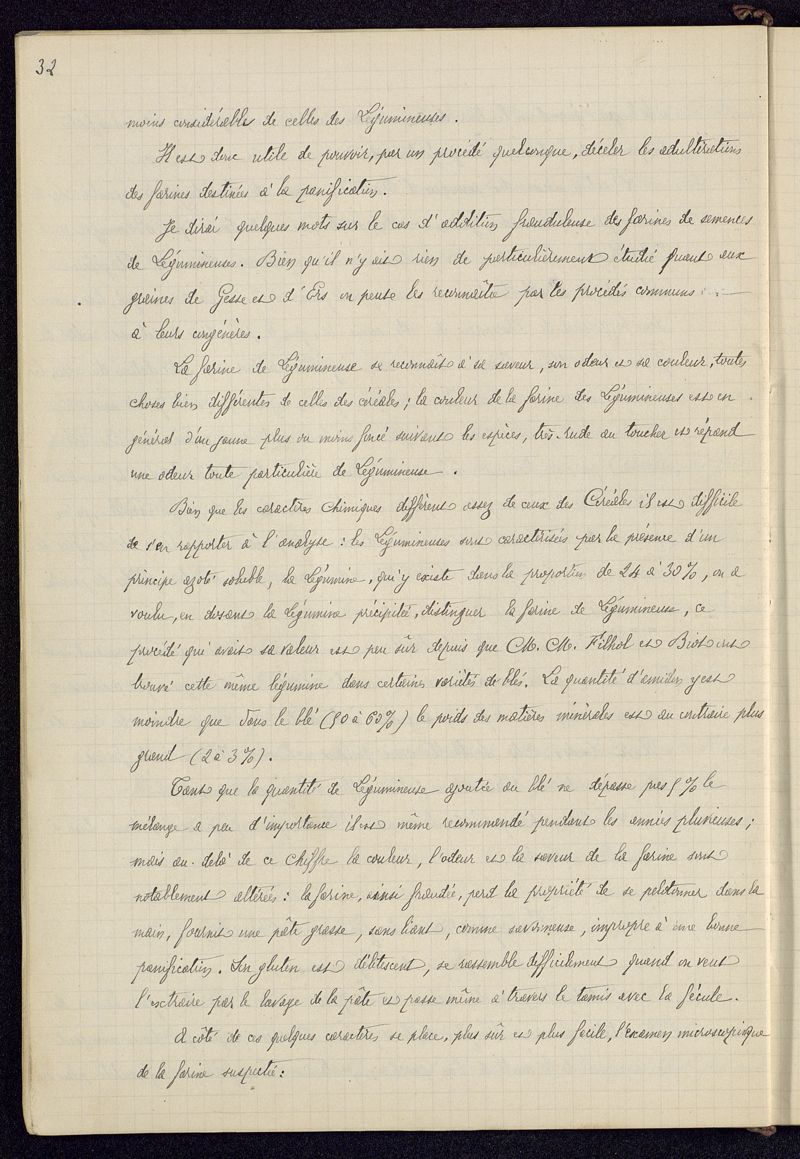 32
moins considérables de celles des Légumineuses.
Il est donc utile de pouvoir, par un procédé quelconque, déceler les adultérations
des farines destinées à la panification.
Je dirai quelques mots sur le cas d'addition frauduleuse des farines de semences
de Légumineuses. Bien qu'il n'y ait rien de particulièrement étudié quant aux
graines de Gesse et d'Ers on peut les reconnaître par les procédés communs
à leurs congénères.
La farine de Légumineuse se reconnaît à sa saveur, son odeur et sa couleur, toutes
choses bien différentes de celles des céréales ; la couleur de la farine des Légumineuses est en
général d'un jaune plus ou moins foncé suivant les espèces, très-rude au toucher et répand
une odeur toute particulière de Légumineuse.
Bien que les caractères chimiques diffèrent assez de ceux des Céréales il est difficile
de s'en rapporter à l'analyse : les Légumineuses sont caractérisées par la présence d'un
principe azoté soluble, la Légumine, qui y existe dans la proportion de 24 à 30%, on a
voulu, en dosant la Légumine précipitée, distinguer la farine de Légumineuse, ce
procédé qui avait sa valeur est peu sûr depuis que M. M. Filhol et Biot ont
trouvé cette même légumine dans certaines variétés de blé. La quantité d'amidon y est
moindre que dans le blé (50 à 60%) le poids des matières minérales est au contraire plus
grand (2 à 3%).
Tant que la quantité de Légumineuse ajoutée au blé ne dépasse pas 5% le
mélange a peu d'importance il est même recommandé pendant les années pluvieuses ;
mais au-delà de ce chiffre la couleur, l'odeur et la saveur de la farine sont
notablement altérées : la farine, ainsi fraudée, perd la propriété de se pelotonner dans la
main, fournit une pâte grasse, sans liant, comme savonneuse, impropre à une bonne
panification. Son gluten est délitescent, se rassemble difficilement quand on veut
l'extraire par le lavage de la pâte et passe même à travers le tamis avec la fécule.
A côté de ces quelques caractères se place, plus sûr et plus facile, l'examen microscopique
de la farine suspectée :